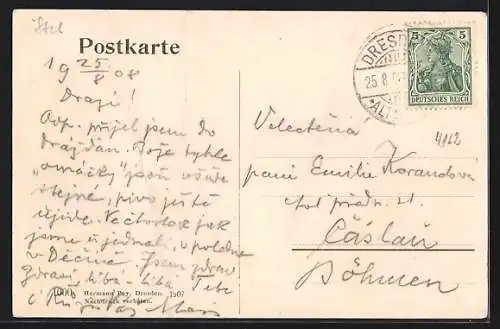 Postkarte
19 25/8 08
Drazí!
Odp. přijel jsem do
Drážďan. Tyhle
"omáčky" jsou všude
stejné, pivo ještě
ujde. Ve čtvrtek jak
jsme ujednali, v poledne
v Děčíně. Jsem zdráv
Zdraví líbá
1000. Hermann Poy, Dresden. 1907
Nachdruck verboten.
DRESDEN
25.8.
ALT
5 5
DEUTSCHES REICH
4162
Velectěná
paní Emilie Korandová
Čáslau
Böhmen